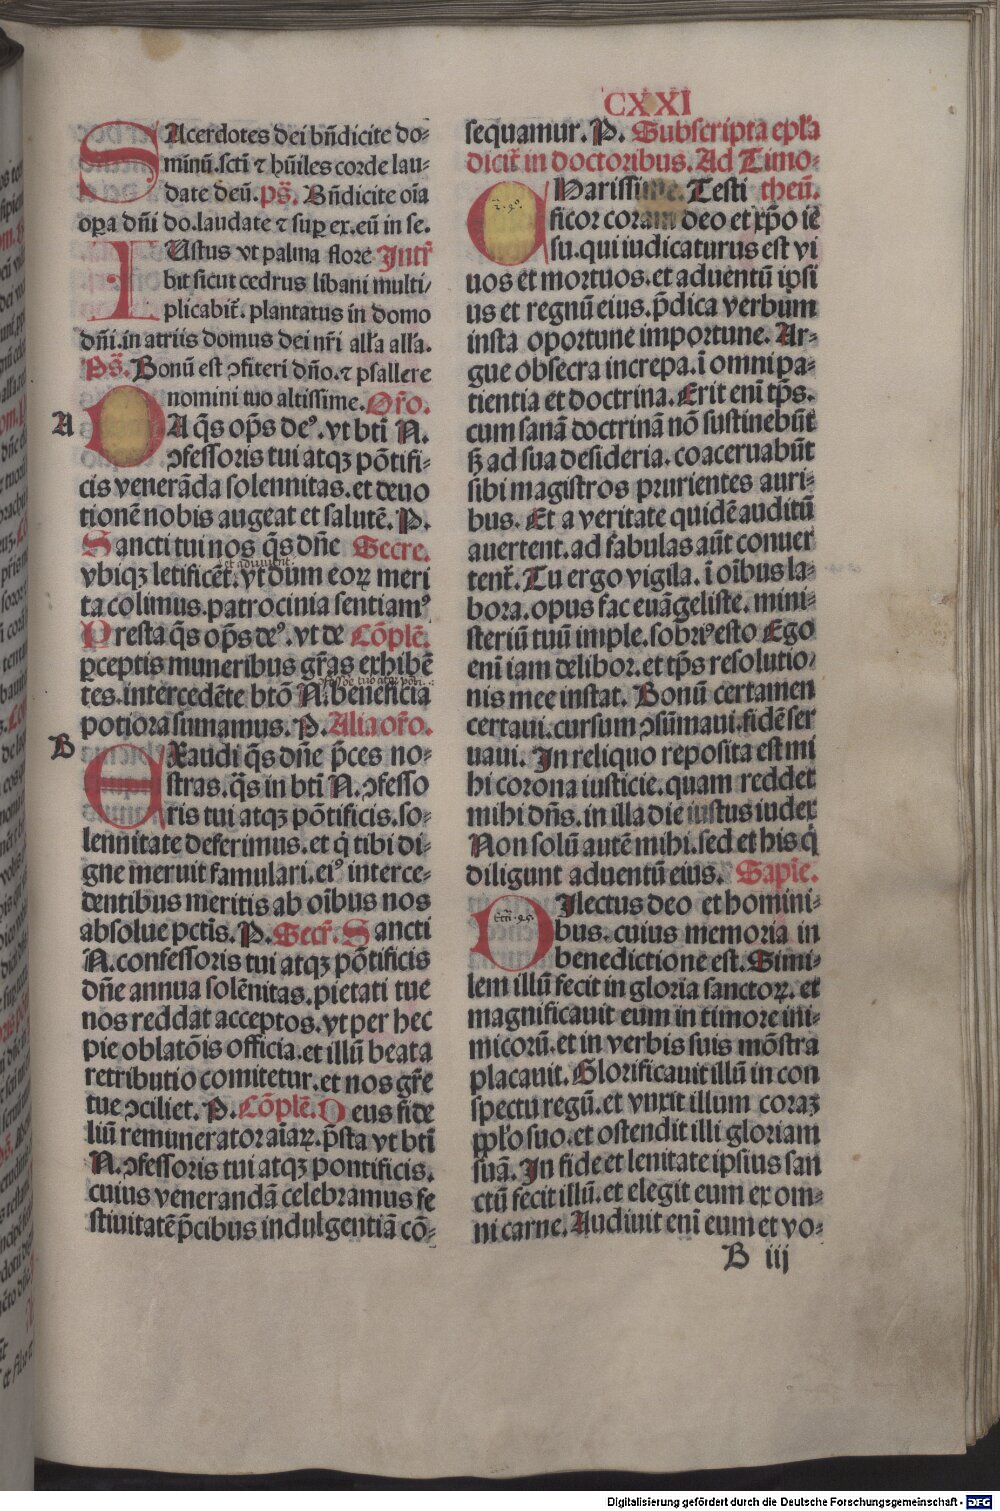 CXXI
SAcerdotes dei bn̄dicite do⸗
minū.scti ⁊ hūiles corde lau⸗
date deū. ps̄. Bn̄dicite oīa
opa dn̄i do.laudate ⁊ suꝑ ex.eū in se.
IUstus vt palma flore Intr̄
bit sicut cedrus libani multi⸗
plicabit᷑. plantatus in domo
dn̄i.in atriis domus dei nr̄i all'a all'a.
Ps̄. Bonū est ꝯfiteri dn̄o.⁊ psallere
nomini tuo altissime. Or̄o.
A
DA q̄s op̄s deꝰ.vt bt̄i N.
ꝯfessoris tui atqꝫ pōtifi⸗
cis venerāda solennitas.et deuo
tionē nobis augeat et salutē. P.
Sancti tui nos q̄s dn̄e Secre.
et adiuvent
vbiqꝫ letificēt.vt dum eoꝝ meri
ta colimus.patrocinia sentiamꝰ
Presta q̄s op̄s deꝰ.vt de Cōplē.
ꝑceptis muneribus gr̄as exhibē
tes.intercedēte btō N.beneficia
potiora sumamus. P. Alia or̄o.
B
EXaudi q̄s dn̄e p̄ces no⸗
stras.q̄s in bt̄i N.ꝯfesso
ris tui atqꝫ pōtificis.so⸗
lennitate deferimus.et q̇ tibi di⸗
gne meruit famulari.eiꝰ interce⸗
dentibus meritis ab oībus nos
absolue pctīs. P. Secr̄. Sancti
N.confessoris tui atqꝫ pōtificis
dn̄e annua solēnitas.pietati tue
nos reddat acceptos.vt per hec
pie oblatōis officia.et illū beata
retributio comitetur.et nos gr̄e
tue ꝯciliet. P. Cōplē. Deus fide
liū remunerator aīaꝝ.p̄sta vt bt̄i
N.ꝯfessoris tui atqꝫ pontificis.
cuius venerandā celebramus fe
stiuitatē p̄cibus indulgentiā cō⸗
sequamur. P. Subscripta epl'a
dicit᷑ in doctoribus. Ad Timo⸗
CHarissime. Testi theū.
ficor coram deo et xp̄o iē
su.qui iudicaturus est vi
uos et mortuos.et aduentū ipsi
us et regnū eius.p̄dica verbum
insta oportune importune. Ar⸗
gue obsecra increpa.ī omni pa⸗
tientia et doctrina. Erit enī tp̄s.
cum sanā doctrinā nō sustinebūt
sꝫ ad sua desideria.coaceruabūt
sibi magistros prurientes auri⸗
bus. Et a veritate quidē auditū
auertent.ad fabulas aūt conuer
tent᷑. Tu ergo vigila.ī oībus la⸗
bora.opus fac euāgeliste.mini⸗
steriū tuū imple.sobriꝰ esto Ego
enī iam delibor.et tp̄s resolutio⸗
nis mee instat. Bonū certamen
certaui.cursum ꝯsūmaui.fidē ser
uaui. In reliquo reposita est mi
hi corona iusticie.quam reddet
mihi dn̄s.in illa die iustus iudex
Non solū autē mihi.sed et his q̇
diligunt aduentū eius. Sapīe.
DIlectus deo et homini⸗
bus.cuius memoria in
benedictione est.Simi⸗
lem illū fecit in gloria sanctoꝝ.et
magnificauit eum in timore ini⸗
micorū.et in verbis suis mōstra
placauit. Glorificauit illū in con
spectu regū.et vnxit illum coraꝫ
ppl'o suo.et ostendit illi gloriam
suā. In fide et lenitate ipsius san
ctū fecit illū.et elegit eum ex om⸗
ni carne. Audiuit enī eum et vo⸗
B iij
Digitalisierung gefördert durch die Deutsche Forschungsgemeinschaft - DFG